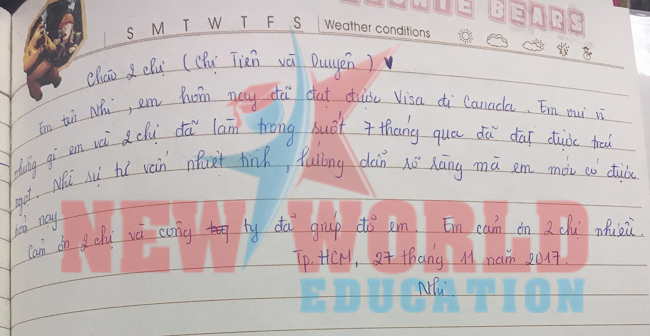 BEARS
S M T W T F S Weather conditions
Chào 2 chị (Chị Tiên và Duyên) ♥
Em tên Nhi, em hôm nay đã đạt được Visa đi Canada. Em vui vì
những gì em và 2 chị đã làm trong suốt 7 tháng qua đã đạt được trái
ngọt. Nhờ sự tư vấn nhiệt tình, hướng dẫn rõ ràng mà em mới có được
hôm nay
Cảm ơn 2 chị và công ty đã giúp đỡ em. Em cảm ơn 2 chị nhiều.
Tp. HCM, 27 tháng 11 năm 2017
Nhi.
NEW WORLD
EDUCATION